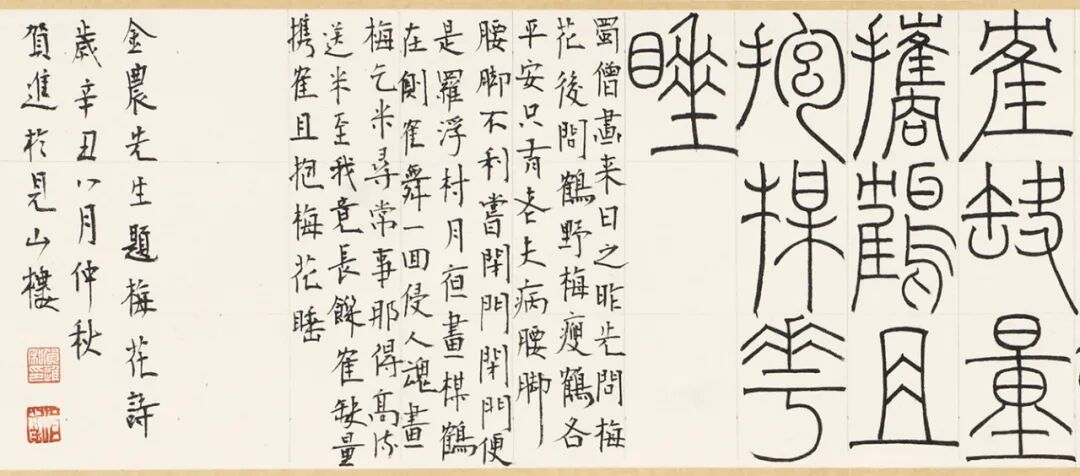 隺缺量
攜鶴且
抱楳花
睡
蜀僧畫来日之昨先問梅
花後問鶴野梅瘦鶴各
平安只有老夫病腰脚
腰脚不利嘗閉門閉門便
是羅浮村月夜畫楳鶴
在側隺舞一回侵人魂畫
梅乞米尋常事那得高流
送米至我竟長饑隺缺量
携隺且抱梅花睡
金農先生題梅花詩
歲辛丑八月仲秋
賀進於見山樓